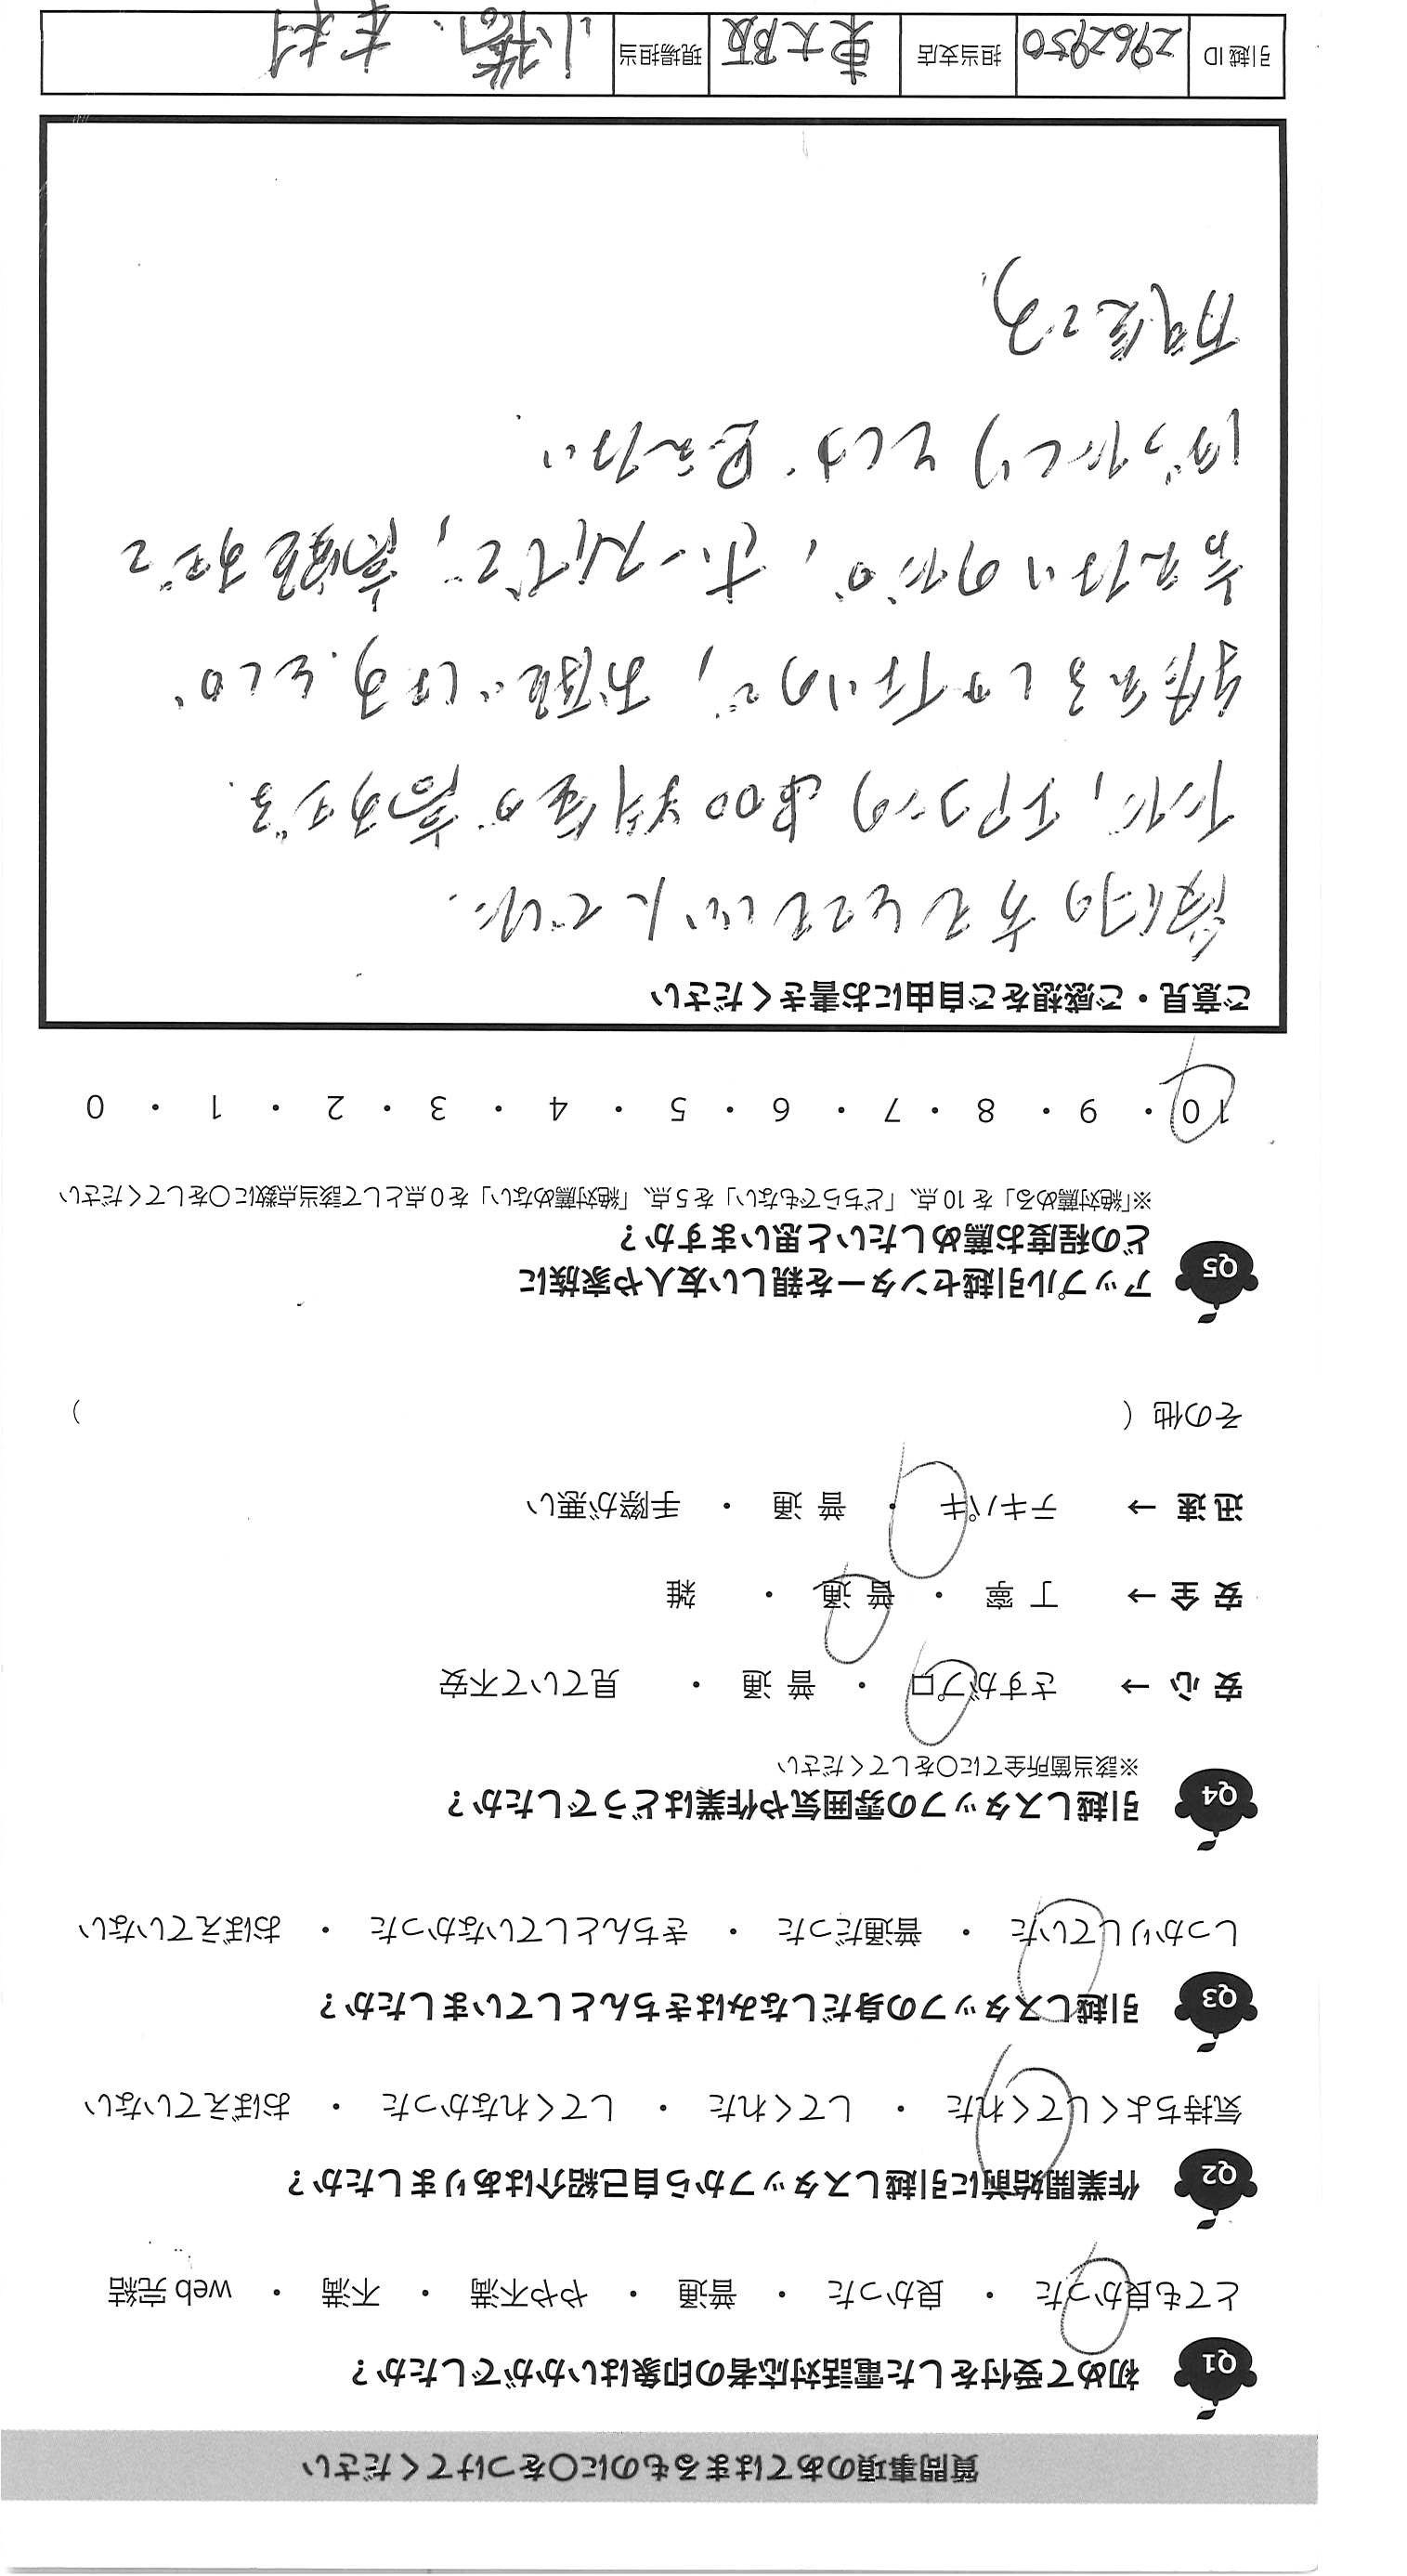 質問事項のあてはまるものに○をつけてください
Q1 初めて受付をした電話対応者の印象はいかがでしたか？
とても良かった ・ 良かった ・ 普通 ・ やや不満 ・ 不満 ・ web 完結
Q2 作業開始前に引越しスタッフから自己紹介はありましたか？
気持ちよくしてくれた ・ してくれた ・ してくれなかった ・ おぼえていない
Q3 引越しスタッフの身だしなみはきちんとしていましたか？
しっかりしていた ・ 普通だった ・ きちんとしていなかった ・ おぼえていない
Q4 引越しスタッフの雰囲気や作業はどうでしたか？
※該当箇所全てに○をしてください
安 心 → さすがプロ ・ 普 通 ・ 見ていて不安
安 全 → 丁 寧 ・ 普 通 ・ 雑
迅 速 → テキパキ ・ 普 通 ・ 手際が悪い
その他（ ）
Q5 アップル引越センターを親しい友人や家族に
どの程度お薦めしたいと思いますか？
※「絶対薦める」を 10 点、「どちらでもない」を 5 点、「絶対薦めない」を 0 点として該当点数に○をしてください
10 ・ 9 ・ 8 ・ 7 ・ 6 ・ 5 ・ 4 ・ 3 ・ 2 ・ 1 ・ 0
ご意見・ご感想をご自由にお書きください
方もとてもいい人でした.
ただ, エアコンの 料金が 高すぎる.
しかないので, お願いしますとしか
言えないのが, ホースなどで, 高 すぎて
ぼったくりとしか 思えない.
です
引越 ID 2962950 担当支店 東大阪 現場担当 小橋、吉村